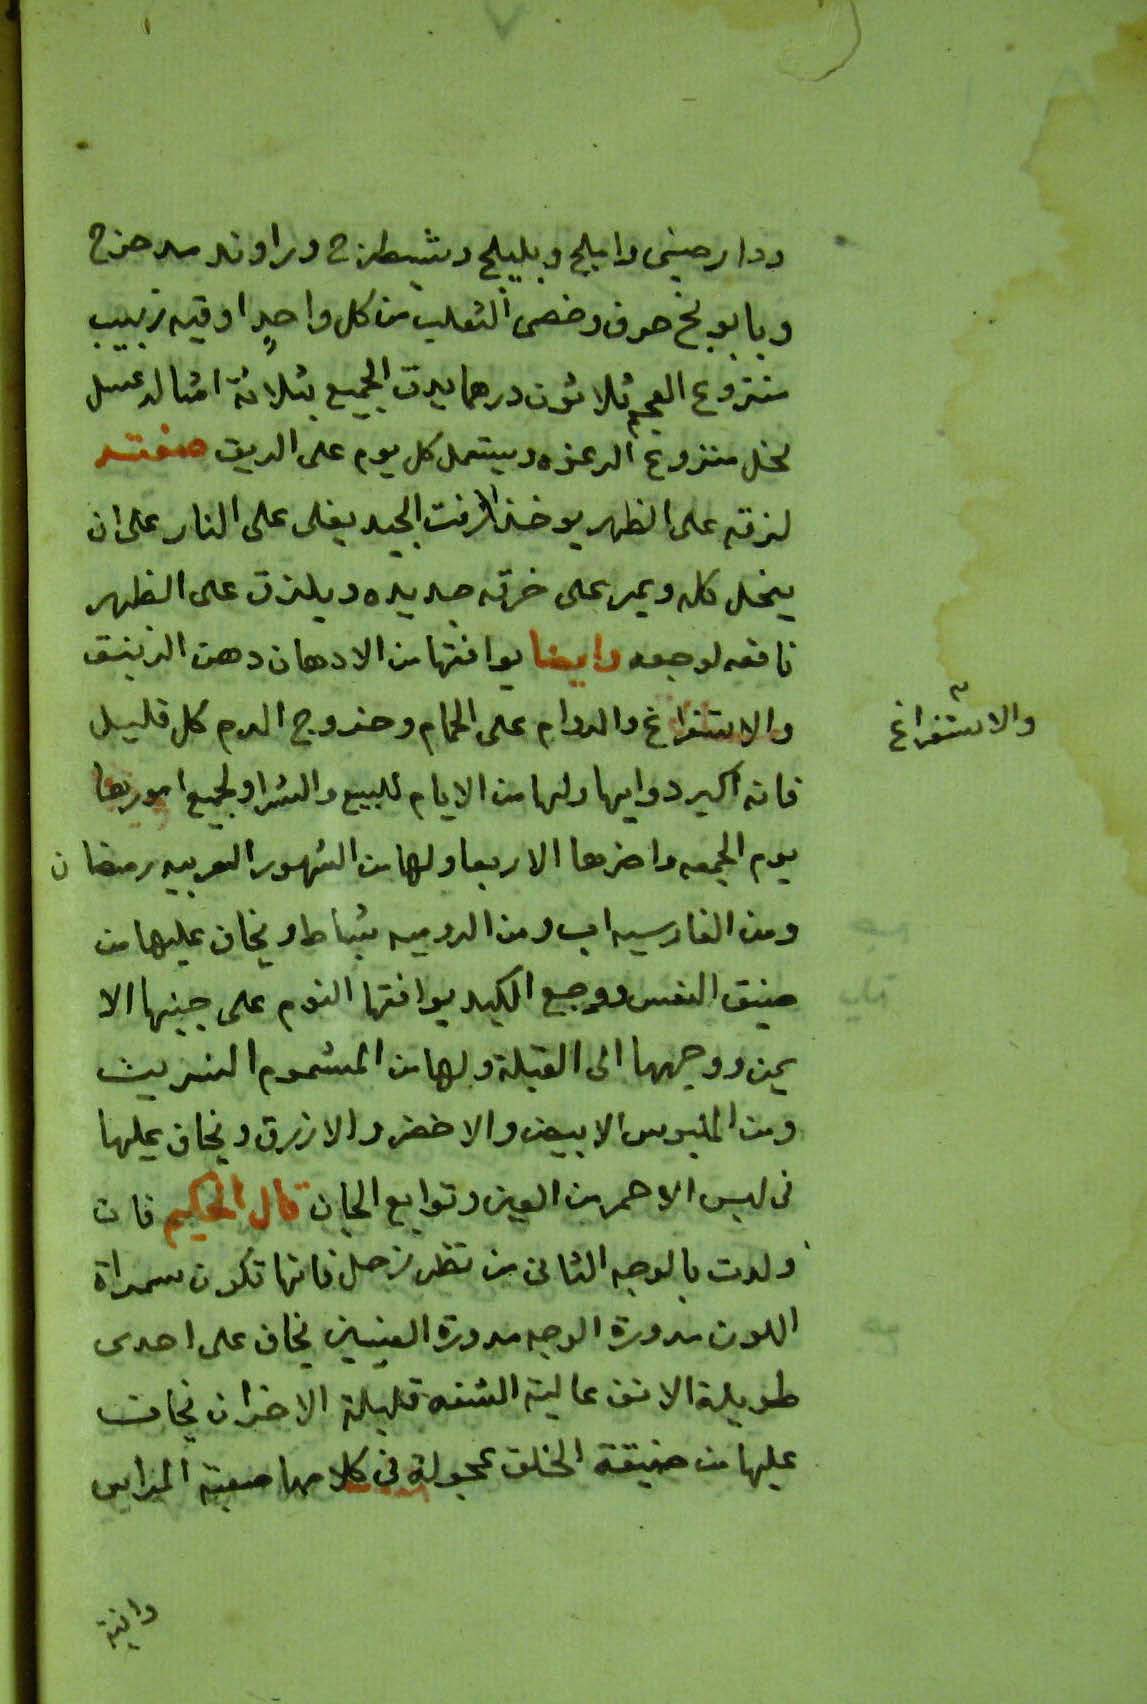 ودارصينى واملج وبليلج وشيطرج وراوند مدحرج
وبابونج حرف وخصى الثعلب من كل واحدٍ اوقيه زبيب
منزوع العجم ثلاثون درهما يدق الجميع بثلاثة امثاله عسل
نحل منزوع الرغوه ويستعمل كل يوم على الريق صفته
لزقه على الظهر يوخذ الزفت الجيد يغلى على النار على ان
ينحل كله ويمر على خرقه جديده ويلزق على الظهر
نافعه لوجعه وايضا يوافقها من الادهان دهن الزنبق
والاستفراغ والدوام على الحمام وخروج الدم كل قليل
والاستفراغ
فانه اكبر دوايها ولها من الايام للبيع والشرا ولجميع امورها
يوم الجمعه واضرها الاربعا ولها من الشهور العربيه رمضان
ومن الفارسيه اب ومن الروميه شباط ويخاف عليها من
ضيق النفس ووجع الكبد يوافقها النوم على جنبها الا
يمن ووجهها الى القبلة ولها من المشموم النسرين
ومن الملبوس الابيض والاخضر والازرق ويخاف عليها
فى لبس الاحمر من العين وتوابع الجان قال الحكيم فان
ولدت بالوجه الثانى من نظر زحل فانها تكون سمراة
اللون مدورة الوجه مدورة العينين يخاف على احدى
طويلة الانف عالية الشفه قليلة الاخوان يخاف
عليها من ضيقة الخلق عجولة فى كلامها صعبة المراس